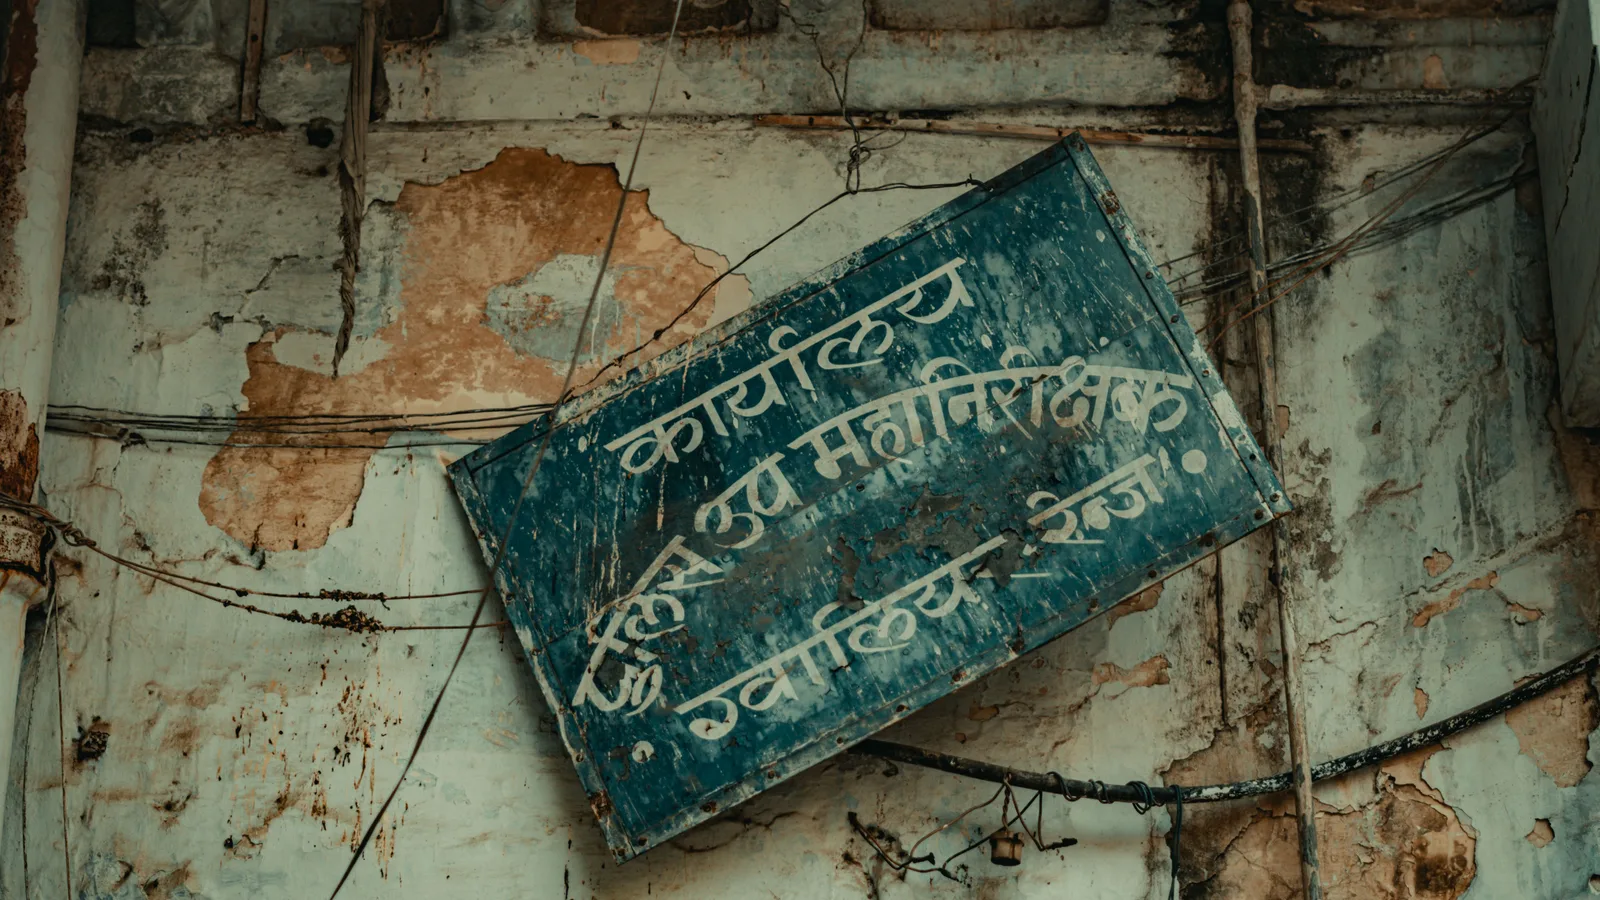 कार्यालय
पुलिस उप महानिरीक्षक
ग्वालियर रेन्ज